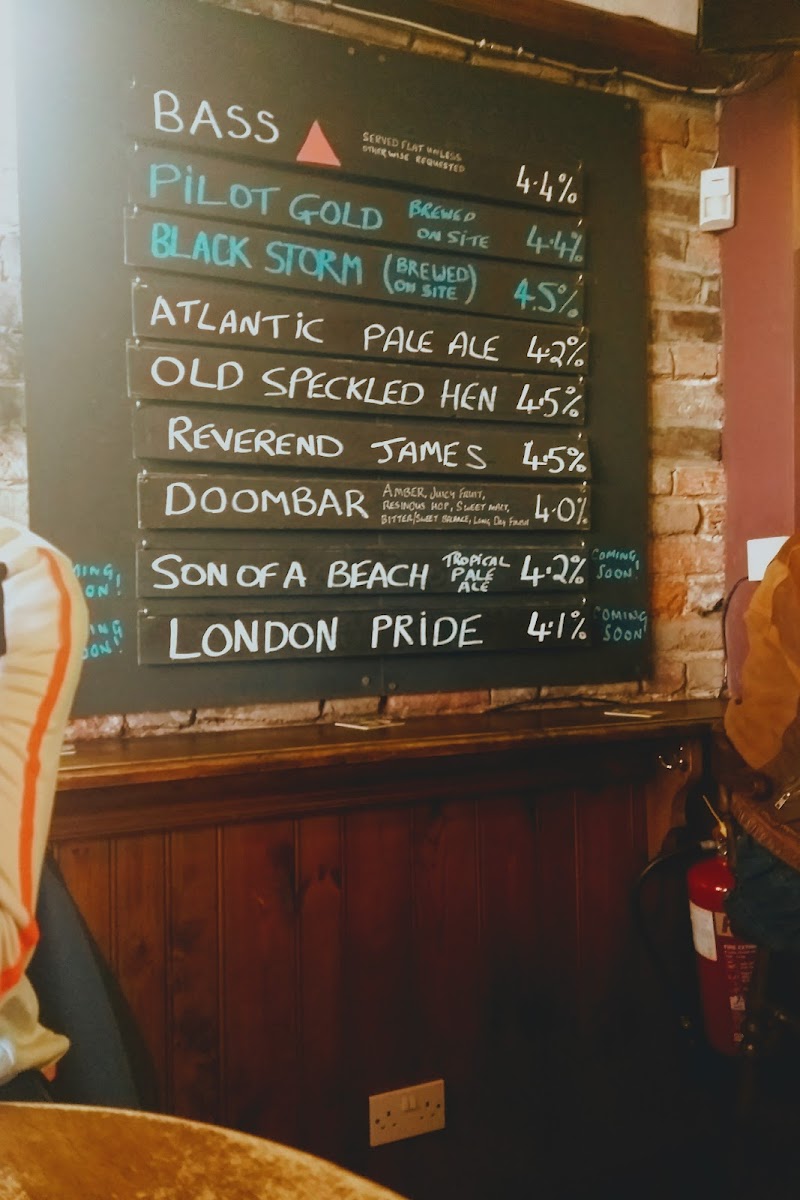 BASS SERVED FLAT UNLESS
OTHERWISE REQUESTED 4.4%
PILOT GOLD BREWED
ON SITE 4.4%
BLACK STORM (BREWED
ON SITE) 4.5%
ATLANTIC PALE ALE 4.2%
OLD SPECKLED HEN 4.5%
REVEREND JAMES 4.5%
DOOMBAR AMBER, JUICY FRUIT,
RESINOUS HOP, SWEET MALT,
BITTER/SWEET BALANCE, LONG DRY FINISH 4.0%
SON OF A BEACH TROPICAL
PALE
ALE 4.2% COMING
SOON!
LONDON PRIDE 4.1% COMING
SOON!